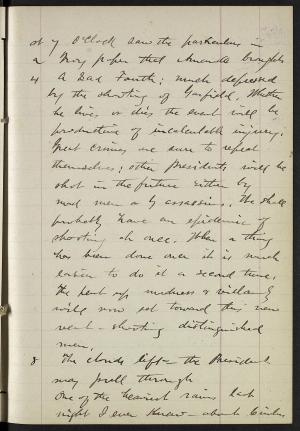 at 7 O'Clock saw the particulars in
a N.Y. paper that Amanda brought
4 A Sad Fourth; much depressed
by the shooting of Garfield. Whether
he lives or dies the event will be
productive of incalculable injury;
Great crimes are sure to repeat
themselves; other Presidents will be
shot in the future either by
mad men or by assassins. We shall
probably have an epidemic of
shooting at once. When a thing
has been done once it is much
easier to do it a second time.
The pent up madness & villainy
will now set toward this new
vent - shooting distinguished
men.
8 The clouds lift - the President
may pull through
One of the heaviest rains last
night I ever knew - about